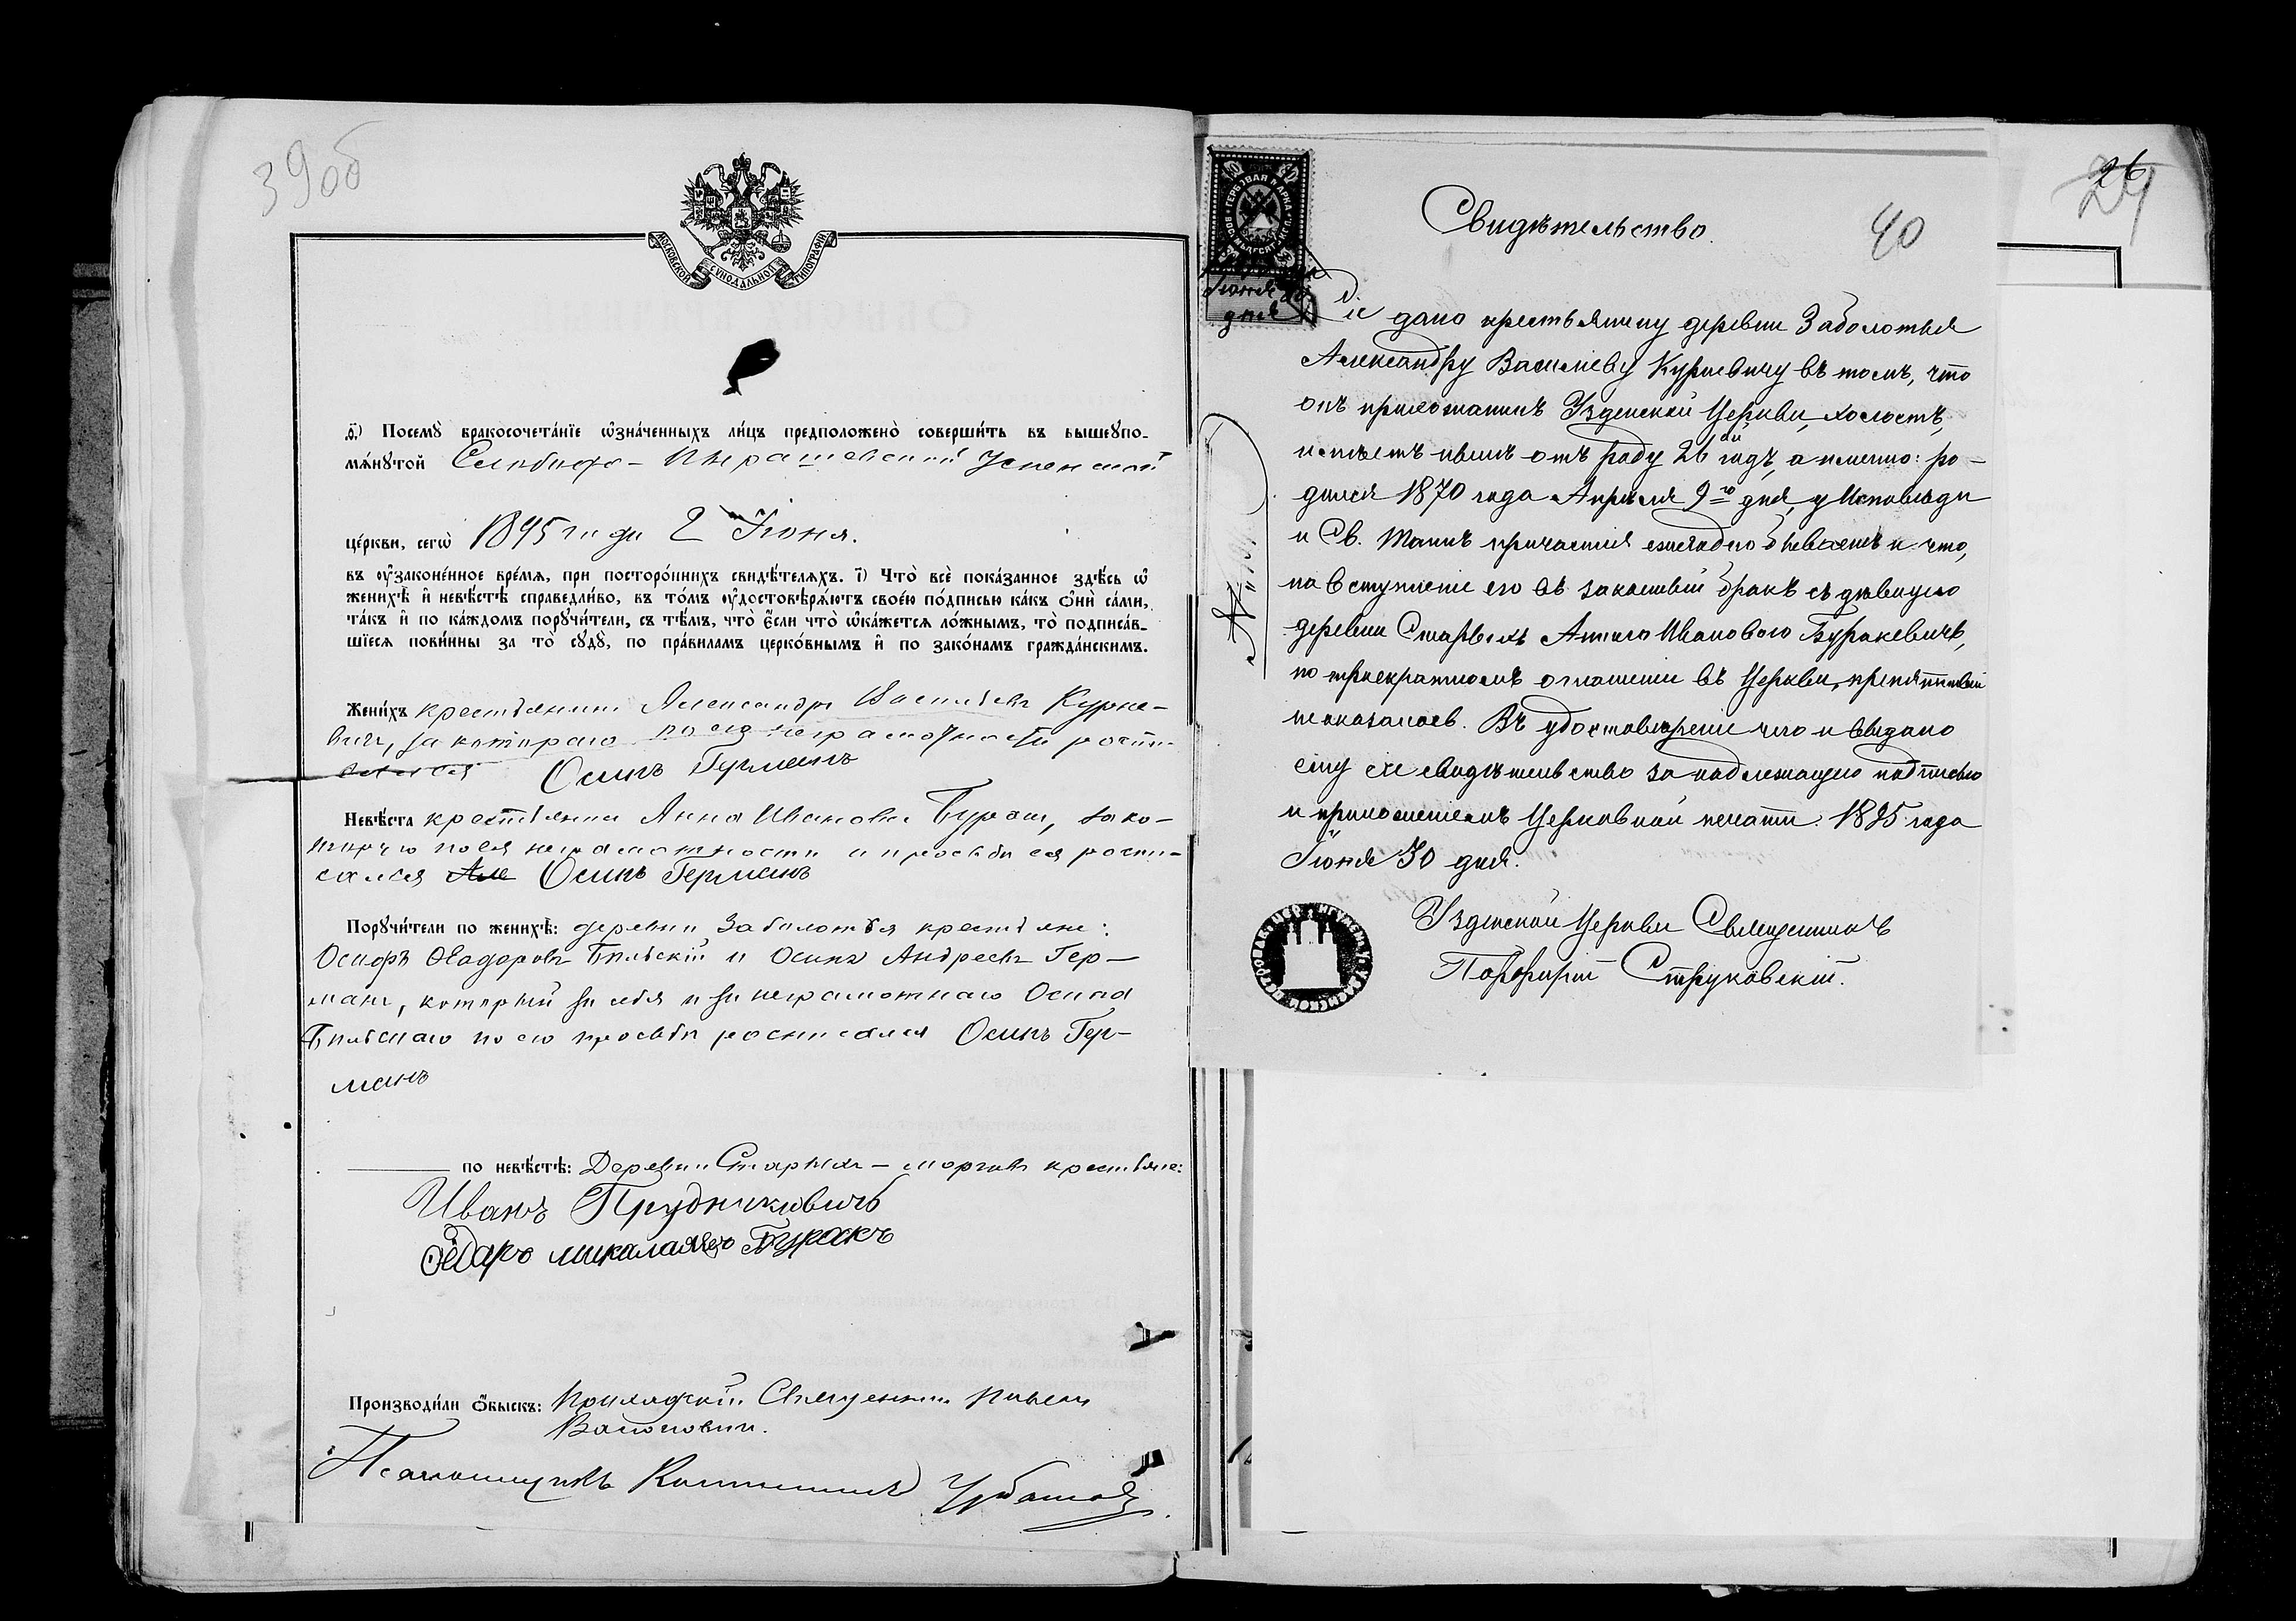 39об
МОСКОВСКОЙ СѴНОДАЛЬНОЙ ТИПОГРАФІИ
ѳ҃) Посемꙋ̀ бракосочета́нїе ѡ҆зна́ченныхъ ли́цъ предположено̀ соверши́ть въ вышеꙋпо-
мѧ́нꙋтой Успенской
це́ркви, сегѡ̀ 1895 года 2 Іюня.
въ ᲂу҆зако́ненное вре́мѧ, при посторо́ннихъ свидѣ́телѧхъ. і҃) Что̀ всѐ пока́занное здѣ́сь ѡ҆
женихѣ̀ и҆ невѣ́стѣ справедли́во, въ то́мъ ᲂу҆достовѣрѧ́ютъ свое́ю по́дписью ка́къ ѻ҆нѝ са́ми,
та́къ и҆ по ка́ждомъ порꙋчи́тели, съ тѣ́мъ, что̀ є҆́сли что̀ ѡ҆ка́жетсѧ ло́жнымъ, то̀ подписа́в-
шїесѧ пови́нны за то̀ сꙋдꙋ̀, по пра́виламъ церко́внымъ и҆ по зако́намъ гражда́нскимъ.
Жени́хъ крестьянинъ Александръ Васильевъ Курне-
вич, за котораго по его неграмотности роспи-
сался Осипъ Германъ
Невѣ́ста крестьянка Анна Иванова Бурак, за ко-
торую по ея неграмотности и просьбѣ ея роспи-
сался Але Осипъ Германъ
Порꙋчи́тели по женихѣ̀: деревни Заболотья крестьяне:
Осипъ Ѳеодоровъ Бѣльскій и Осипъ Андреевъ Гер-
манъ, который за себя и за неграмотнаго Осипа
Бѣльскаго по его просьбѣ росписался Осипъ Гер-
манъ
по невѣ́стѣ: Деревни Старыхъ-морговъ крестьяне:
Иванъ Прудниковичъ
Ѳёдаръ микалаявъ Буракъ
Производи́ли ѻ҆́быскъ: Приходскій Священникъ Павелъ
Псаломщикъ
26
29
40
ГЕРБОВАЯ МАРКА
Іюня 30
дня
Свидѣтельство.
Сіе дано крестьянину деревни Заболотья
Александру Васильеву Курневичу въ томъ, что
онъ прихожанинъ Узденской Церкви, холостъ,
имѣетъ нынѣ отъ роду 26ой годъ, а именно: ро-
дился 1870 года Апрѣля 9го дня, у Исповѣди
и Св. Таинъ причастія ежегодно бываетъ и что,
на вступленіе его въ законный бракъ съ дѣвицею
деревни Старыхъ Анною Ивановою Буракевичъ,
по троекратномъ оглашеніи въ Церкви, препятствій
не оказалось. Въ удостовѣреніе чего и выдано
ему сіе свидѣтельство за надлежащею подписью
и приложеніемъ Церковной печати. 1895 года
Іюня 30 дня.
Узденской Церкви Священникъ
Порфирій Струковскій.